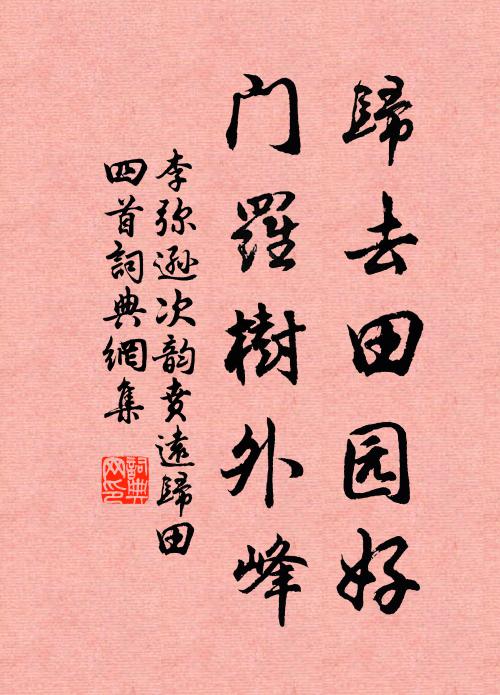 歸去田园好
门羅樹外峰
李弥逊次韵贲遠歸田
四首詞典網集
詞典
网印